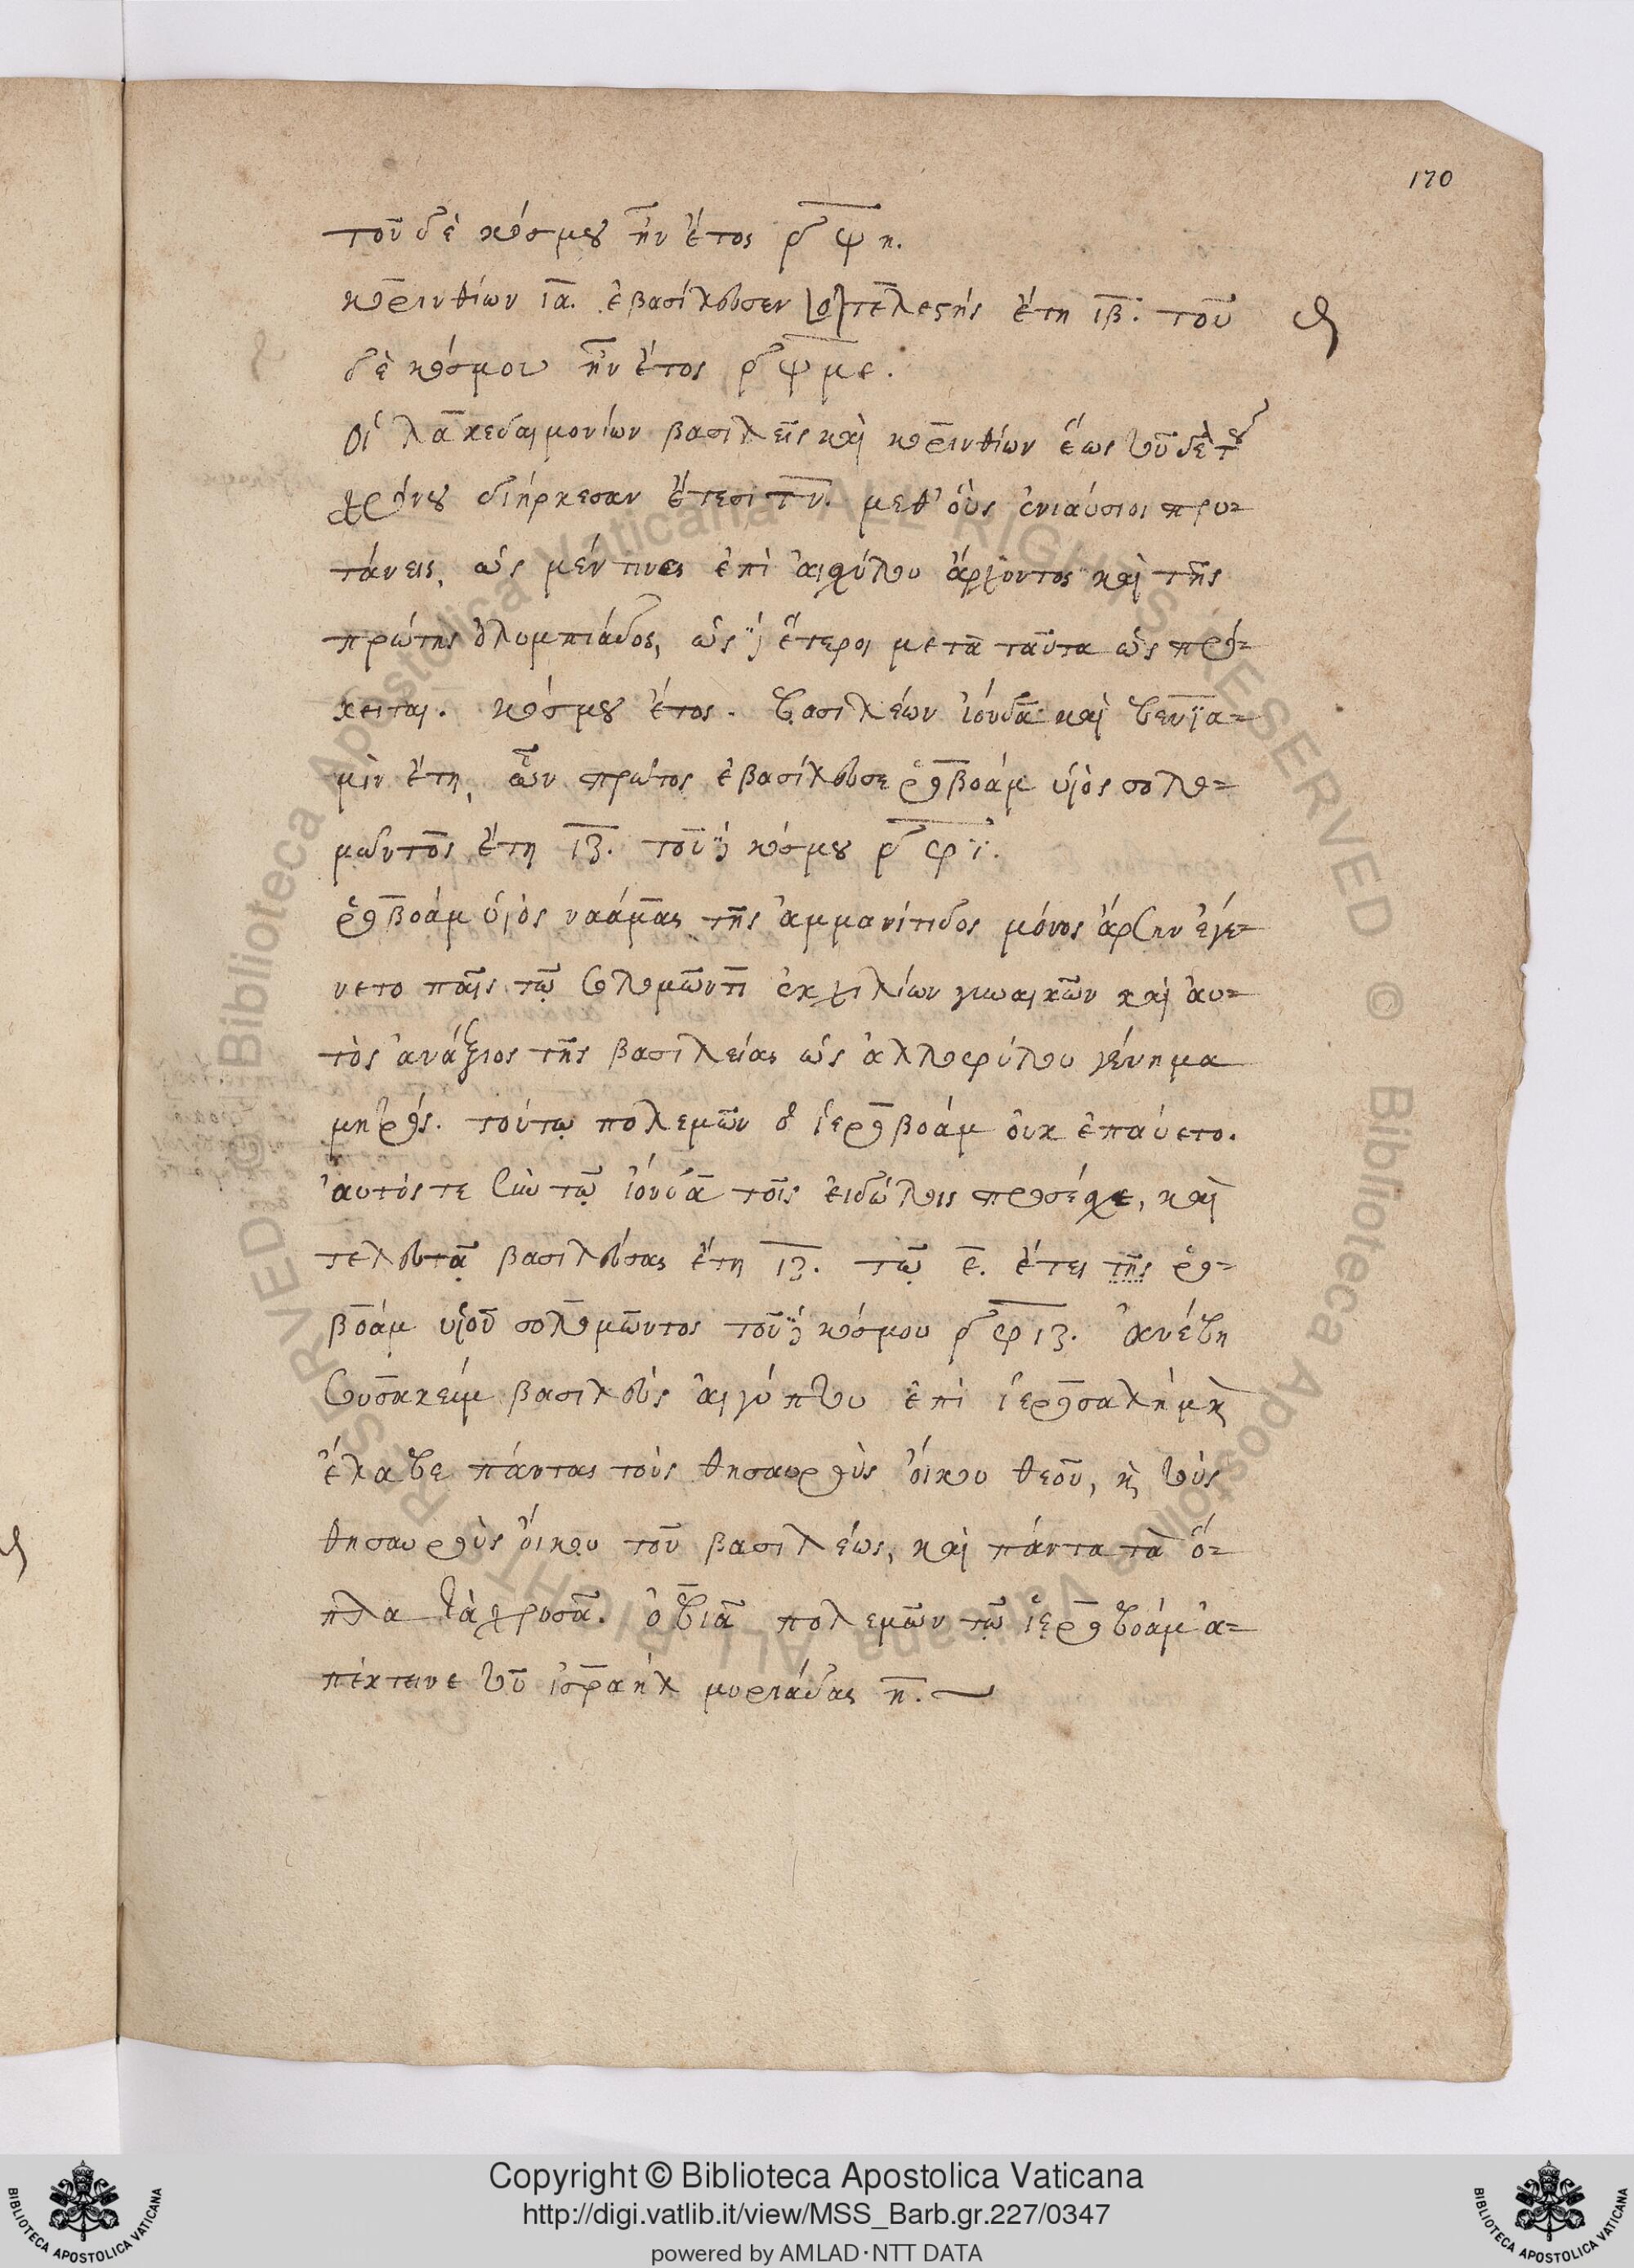 170
τοῦ δὲ κόσμου ἦν ἔτος ͵δψη.
κορινθίων ια. ἐβασίλευσεν τελέστης ἔτη ιβ. τοῦ
δὲ κόσμου ἦν ἔτος ͵δψμε.
Οἱ λακεδαιμονίων βασιλεῖς καὶ κορινθίων ἕως τοῦδε τοῦ
χρόνου διήρκεσαν ἔτεσι τν. μεθ' οὓς ἐνιαύσιοι πρυ-
τάνεις, ὡς μέν τινες ἐπὶ αἰσχύλου ἄρχοντος καὶ τῆς
πρώτης ὀλυμπιάδος, ὡς δὲ ἕτεροι μετὰ ταῦτα ὡς πρό-
κειται. κόσμου ἔτος. βασιλέων ἰούδα καὶ βενϊα-
μὶν ἔτη, ὧν πρῶτος ἐβασίλευσε ῥοβοὰμ υἱὸς σολο-
μῶντος ἔτη ιζ. τοῦ δὲ κόσμου ͵δφι.
ῥοβοὰμ υἱὸς ναάμας τῆς ἀμμανίτιδος μόνος ἄρσην ἐγέ-
νετο παῖς τῷ σολομῶντι ἐκ χιλίων γυναικῶν καὶ αὐ-
τὸς ἀνάξιος τῆς βασιλείας ὡς ἀλλοφύλου γένημα
μητρός. τούτῳ πολεμῶν ὁ ἱεροβοὰμ οὐκ ἐπαύετο.
αὐτός τε σὺν τῷ ἰούδα τοῖς εἰδώλοις προσέσχε, καὶ
τελευτᾷ βασιλεύσας ἔτη ιζ. τῷ ε. ἔτει τῆς ῥο-
βοὰμ υἱοῦ σολομῶντος τοῦ δὲ κόσμου ͵δφιζ. ἀνέβη
σουσακεὶμ βασιλεὺς αἰγύπτου ἐπὶ ἱερουσαλὴμ κ
ἔλαβε πάντας τοὺς θησαυροὺς οἴκου θεοῦ, κ τοὺς
θησαυροὺς οἴκου τοῦ βασιλέως, καὶ πάντα τὰ ὅ-
πλα τὰ χρυσᾶ. ὁ ἀβιᾶ πολεμῶν τῷ ἱεροβοὰμ ἀ-
πέκτεινε τοῦ ἰσραὴλ μυριάδας ν.
Copyright © Biblioteca Apostolica Vaticana
http://digi.vatlib.it/view/MSS_Barb.gr.227/0347
powered by AMLAD·NTT DATA